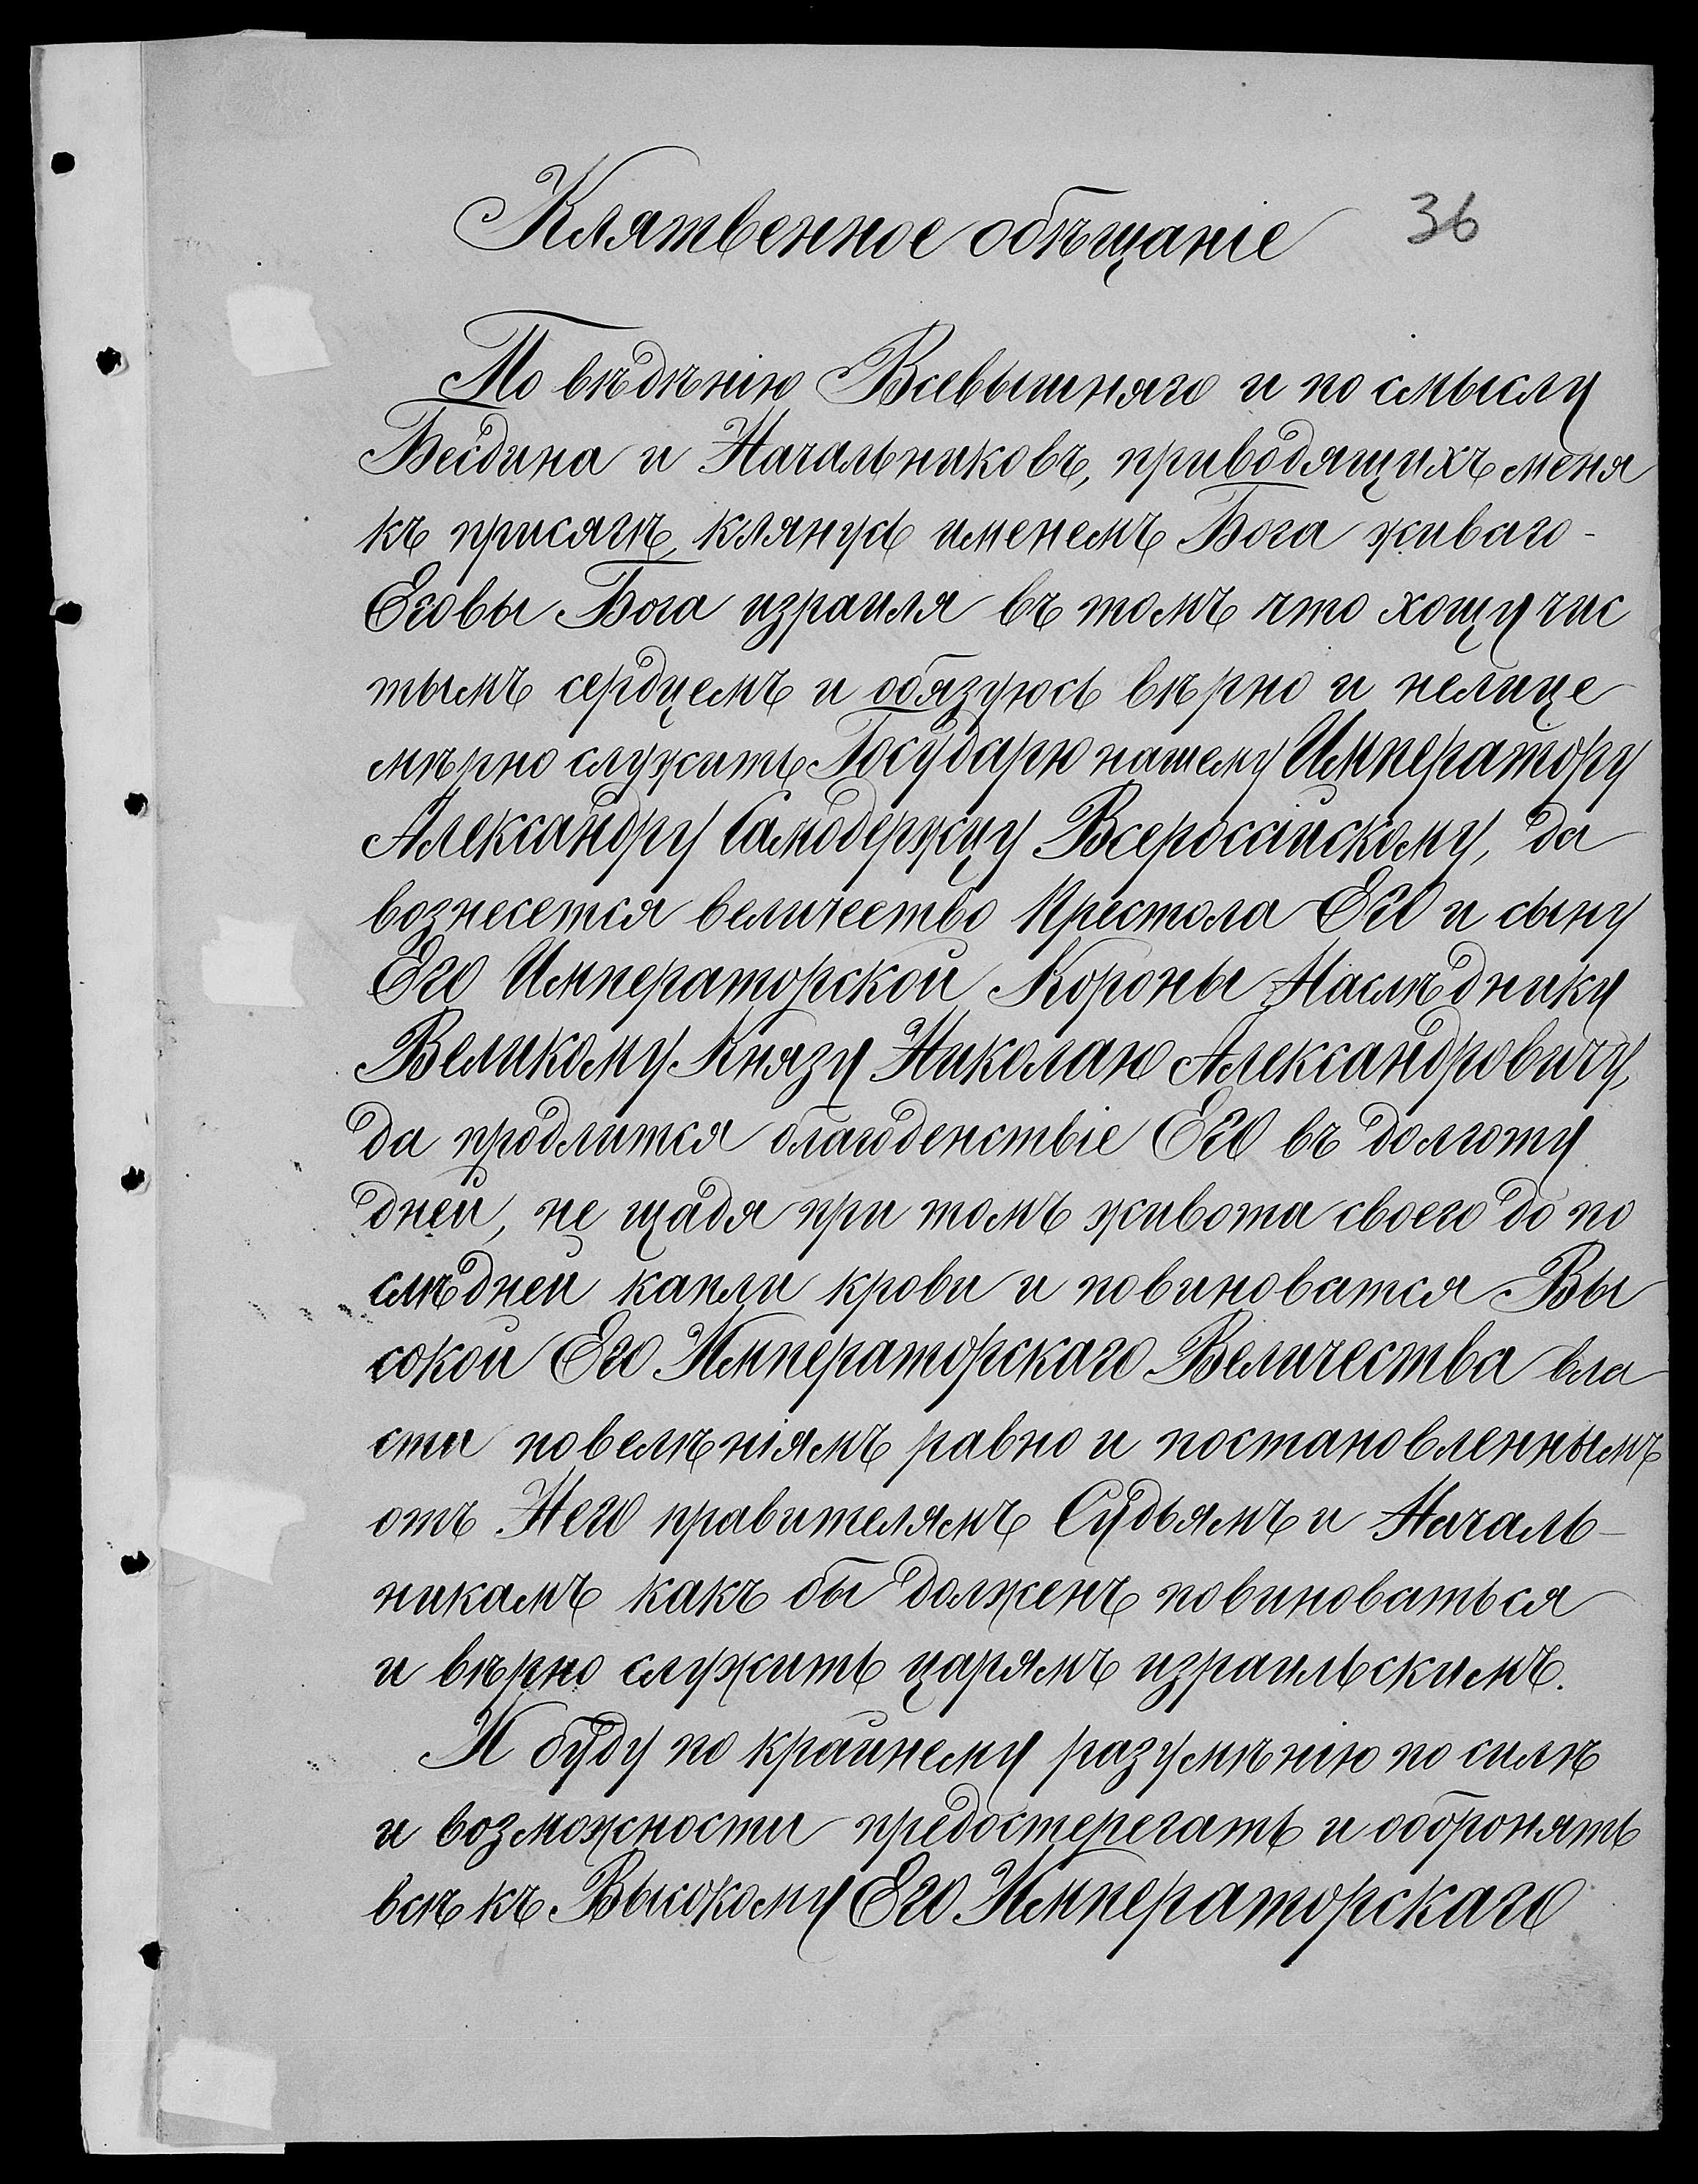 Клятвенное обѣщаніе
36
По вѣдѣнію Всевышняго и по смыслу
Бесдина и Начальниковъ, приводящихъ меня
къ присягѣ, клянусь именемъ Бога живаго -
Еговы Бога израиля въ томъ что хощу чис
тымъ сердцемъ и обязуюсь вѣрно и нелице
мѣрно служить Государю нашему Императору
Александру Самодержцу Всероссійскому, да
вознесется величество Престола Его и сыну
Его Императорской Короны Наслѣднику
Великому Князу Николаю Александровичу,
да продлится благоденствіе Его въ долготу
дней, не щадя при томъ живота своего до по
слѣдней капли крови и повиноватся Вы
сокой Его Императорскаго Величества вла
сти повелѣніямъ равно и постановленнымъ
отъ Него правителямъ Судьямъ и Началь-
никамъ какъ бы долженъ повиноваться
и вѣрно служить царямъ израильскимъ.
И буду по крайнему разумѣнію по силѣ
и возможности предостерегать и оборонять
всѣ къ Высокому Его Императорскаго